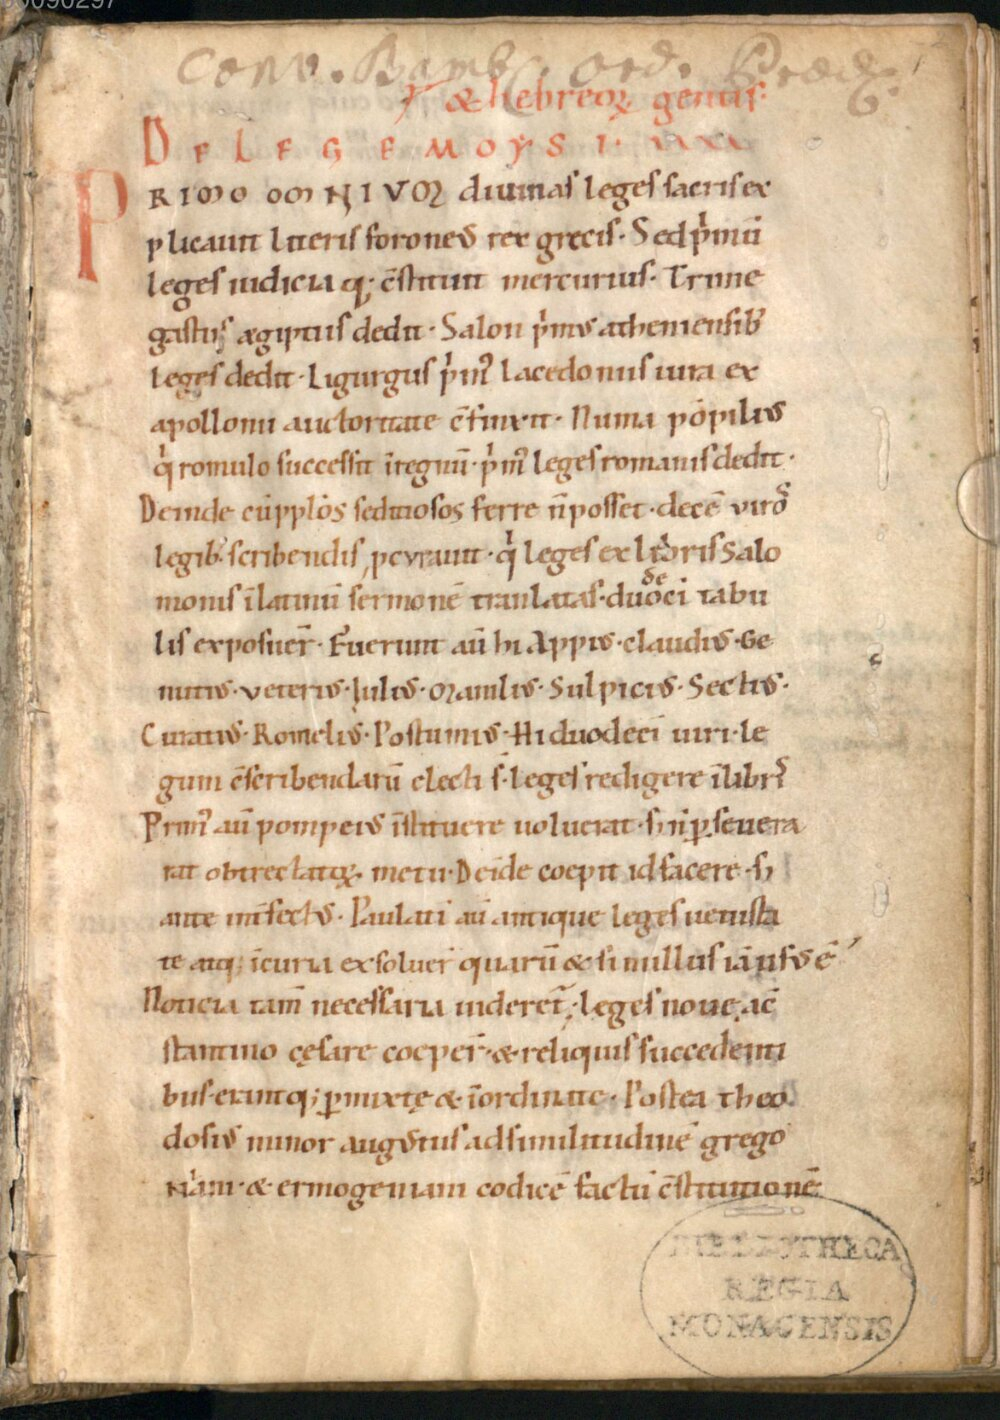 00090297
Conv. Bamb. ord. Praed.
& hebreoꝝ gentis
DE LEGE MOYSI
PRIMO OMNIVOꝜ diuinas leges sacris ex
plicauit literis foroneꝰ rex grecis · Sed p̍mū
leges iudicia q; c̄stituit mercurius · Trime
gastus ægiptiis dedit · Salon p̍mꝰ atheniensib'
leges dedit · Ligurgus p̍mꝰ lacedoniis iura ex
apollonii auctoritate c̄finxit · Numa pōpiliꝰ
q̍ romulo successit ī regnū · p̍mꝰ leges romanis dedit ·
Deinde cū pplōs seditiosos ferre n̄ posset · decē virōs
legib; scribendis pcvrauit · q̍ leges ex libris Salo
monis ī latinū sermonē tranlatas · duodeci tabu
lis exposuer̄ · Fuerunt aū hi Appiꝰ · claudiꝰ · Ge
nutiꝰ · veteriꝰ · Iuliꝰ · Maniliꝰ · Sulpiciꝰ · Sectiꝰ ·
Curatiꝰ · Romeliꝰ · Postumiꝰ · Hi duodeci uiri · le
gum c̄scribendarū electi s̄ · leges redigere ī librꝭ
Primꝰ aū pompeiꝰ īstituere uoluerat · sꝫ n̄ ꝑseuera
rat obtrectatoꝝ metu · Deīde coepit id facere · sꝫ
ante intfectꝰ · Paulati aū antique leges uetusta
te atq; īcuria exsoluer̄ quarū & si nullus iā usꝰ ē
Noticia tam̄ necessaria uideret̄ · leges noue, a c̄
stantino cęsare coeper̄ · & reliquis succedenti
bus · erantq; ꝑmixtę & īordinate · Postea theo
dosiꝰ minor augꝰtus ad similitudinē grego
riani · & ermogeniani codicē factū c̄stitutionē
BIBLIOTHECA
REGIA
MONACENSIS